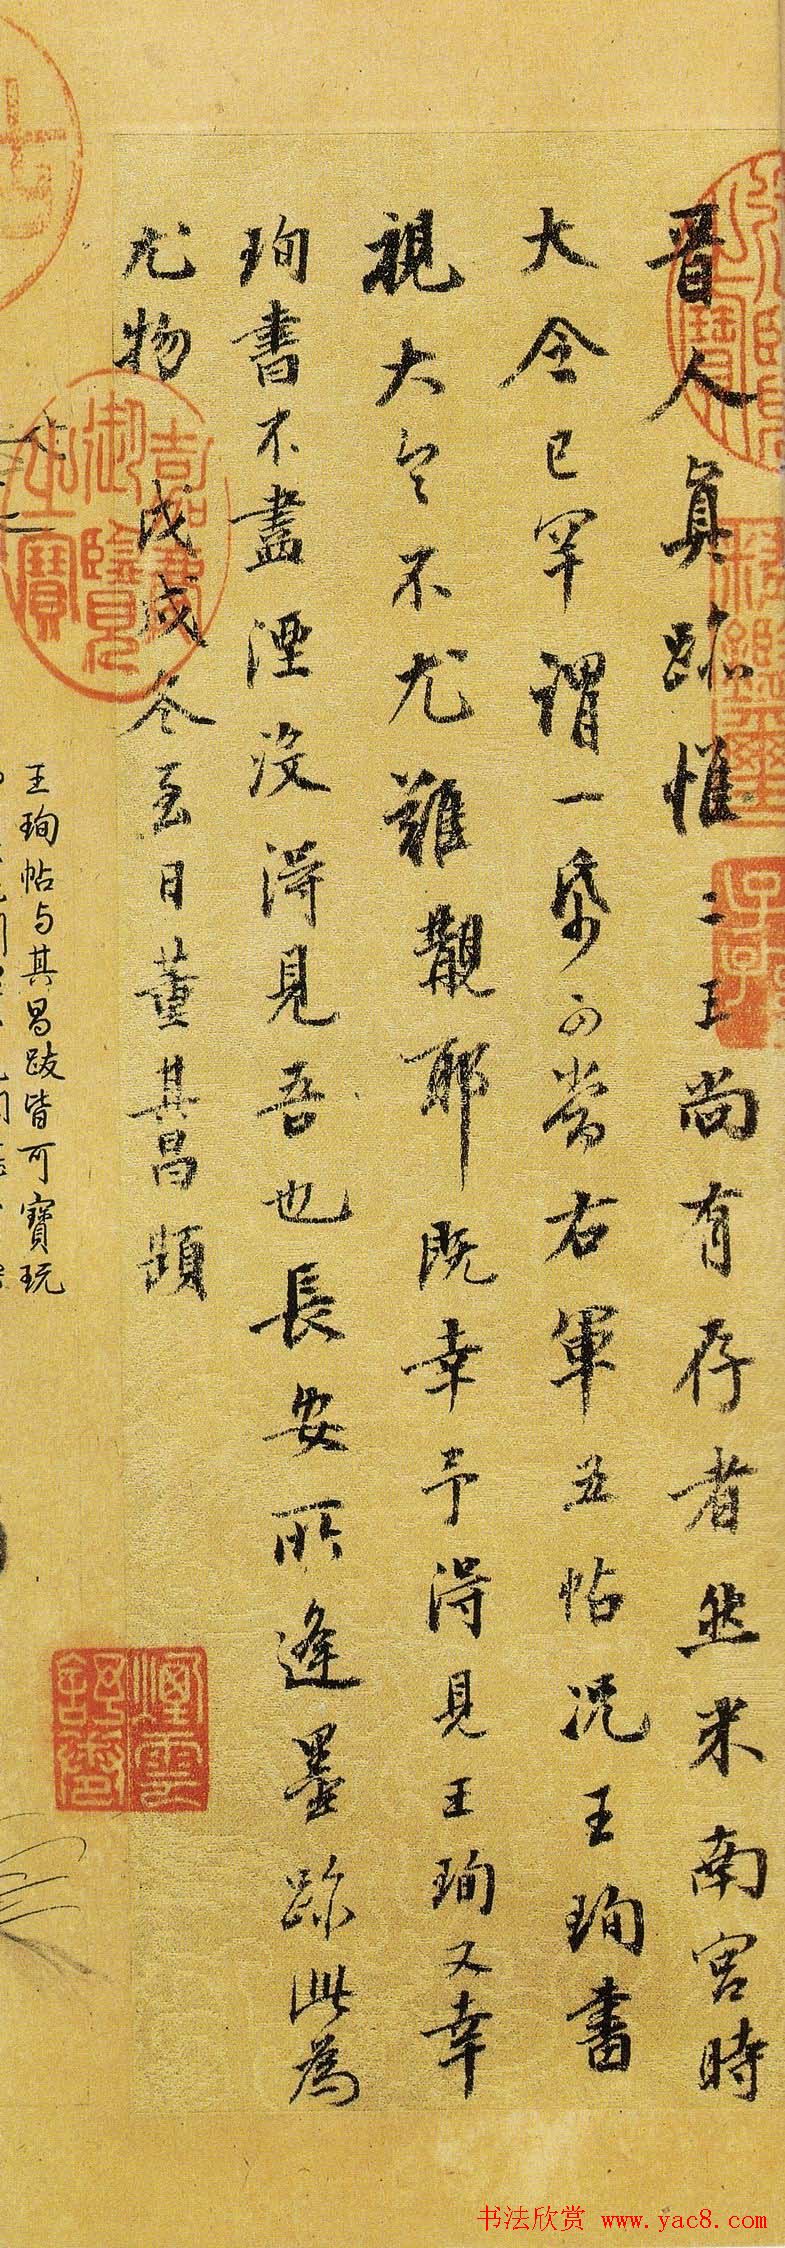 晋人真跡惟二王尚有存者然米南宮時
大令已罕謂一紙可當右軍五帖況王珣書
視大令不尤難覯耶既幸予得見王珣又幸
珣書不盡湮沒得見吾也長安所逢墨跡此為
尤物 戊戌冬至日董其昌題
王珣帖与其昌跋皆可寶玩
嘉慶御覽之寶
书法欣赏 www.yac8.com